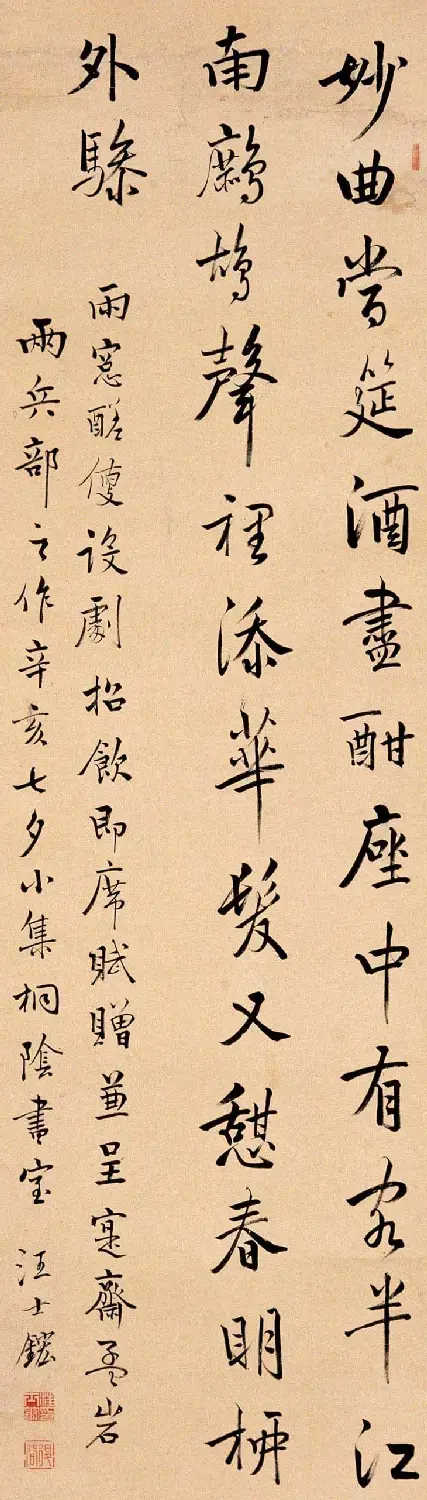 妙曲當筵酒盡酣座中有客半江
南鷓鴣聲裡添華髮又憩春明柳
外驂
雨窓醝使設劇招飲即席賦贈兼呈寔齋孟岩
兩兵部之作辛亥七夕小集桐陰書室 汪士鋐